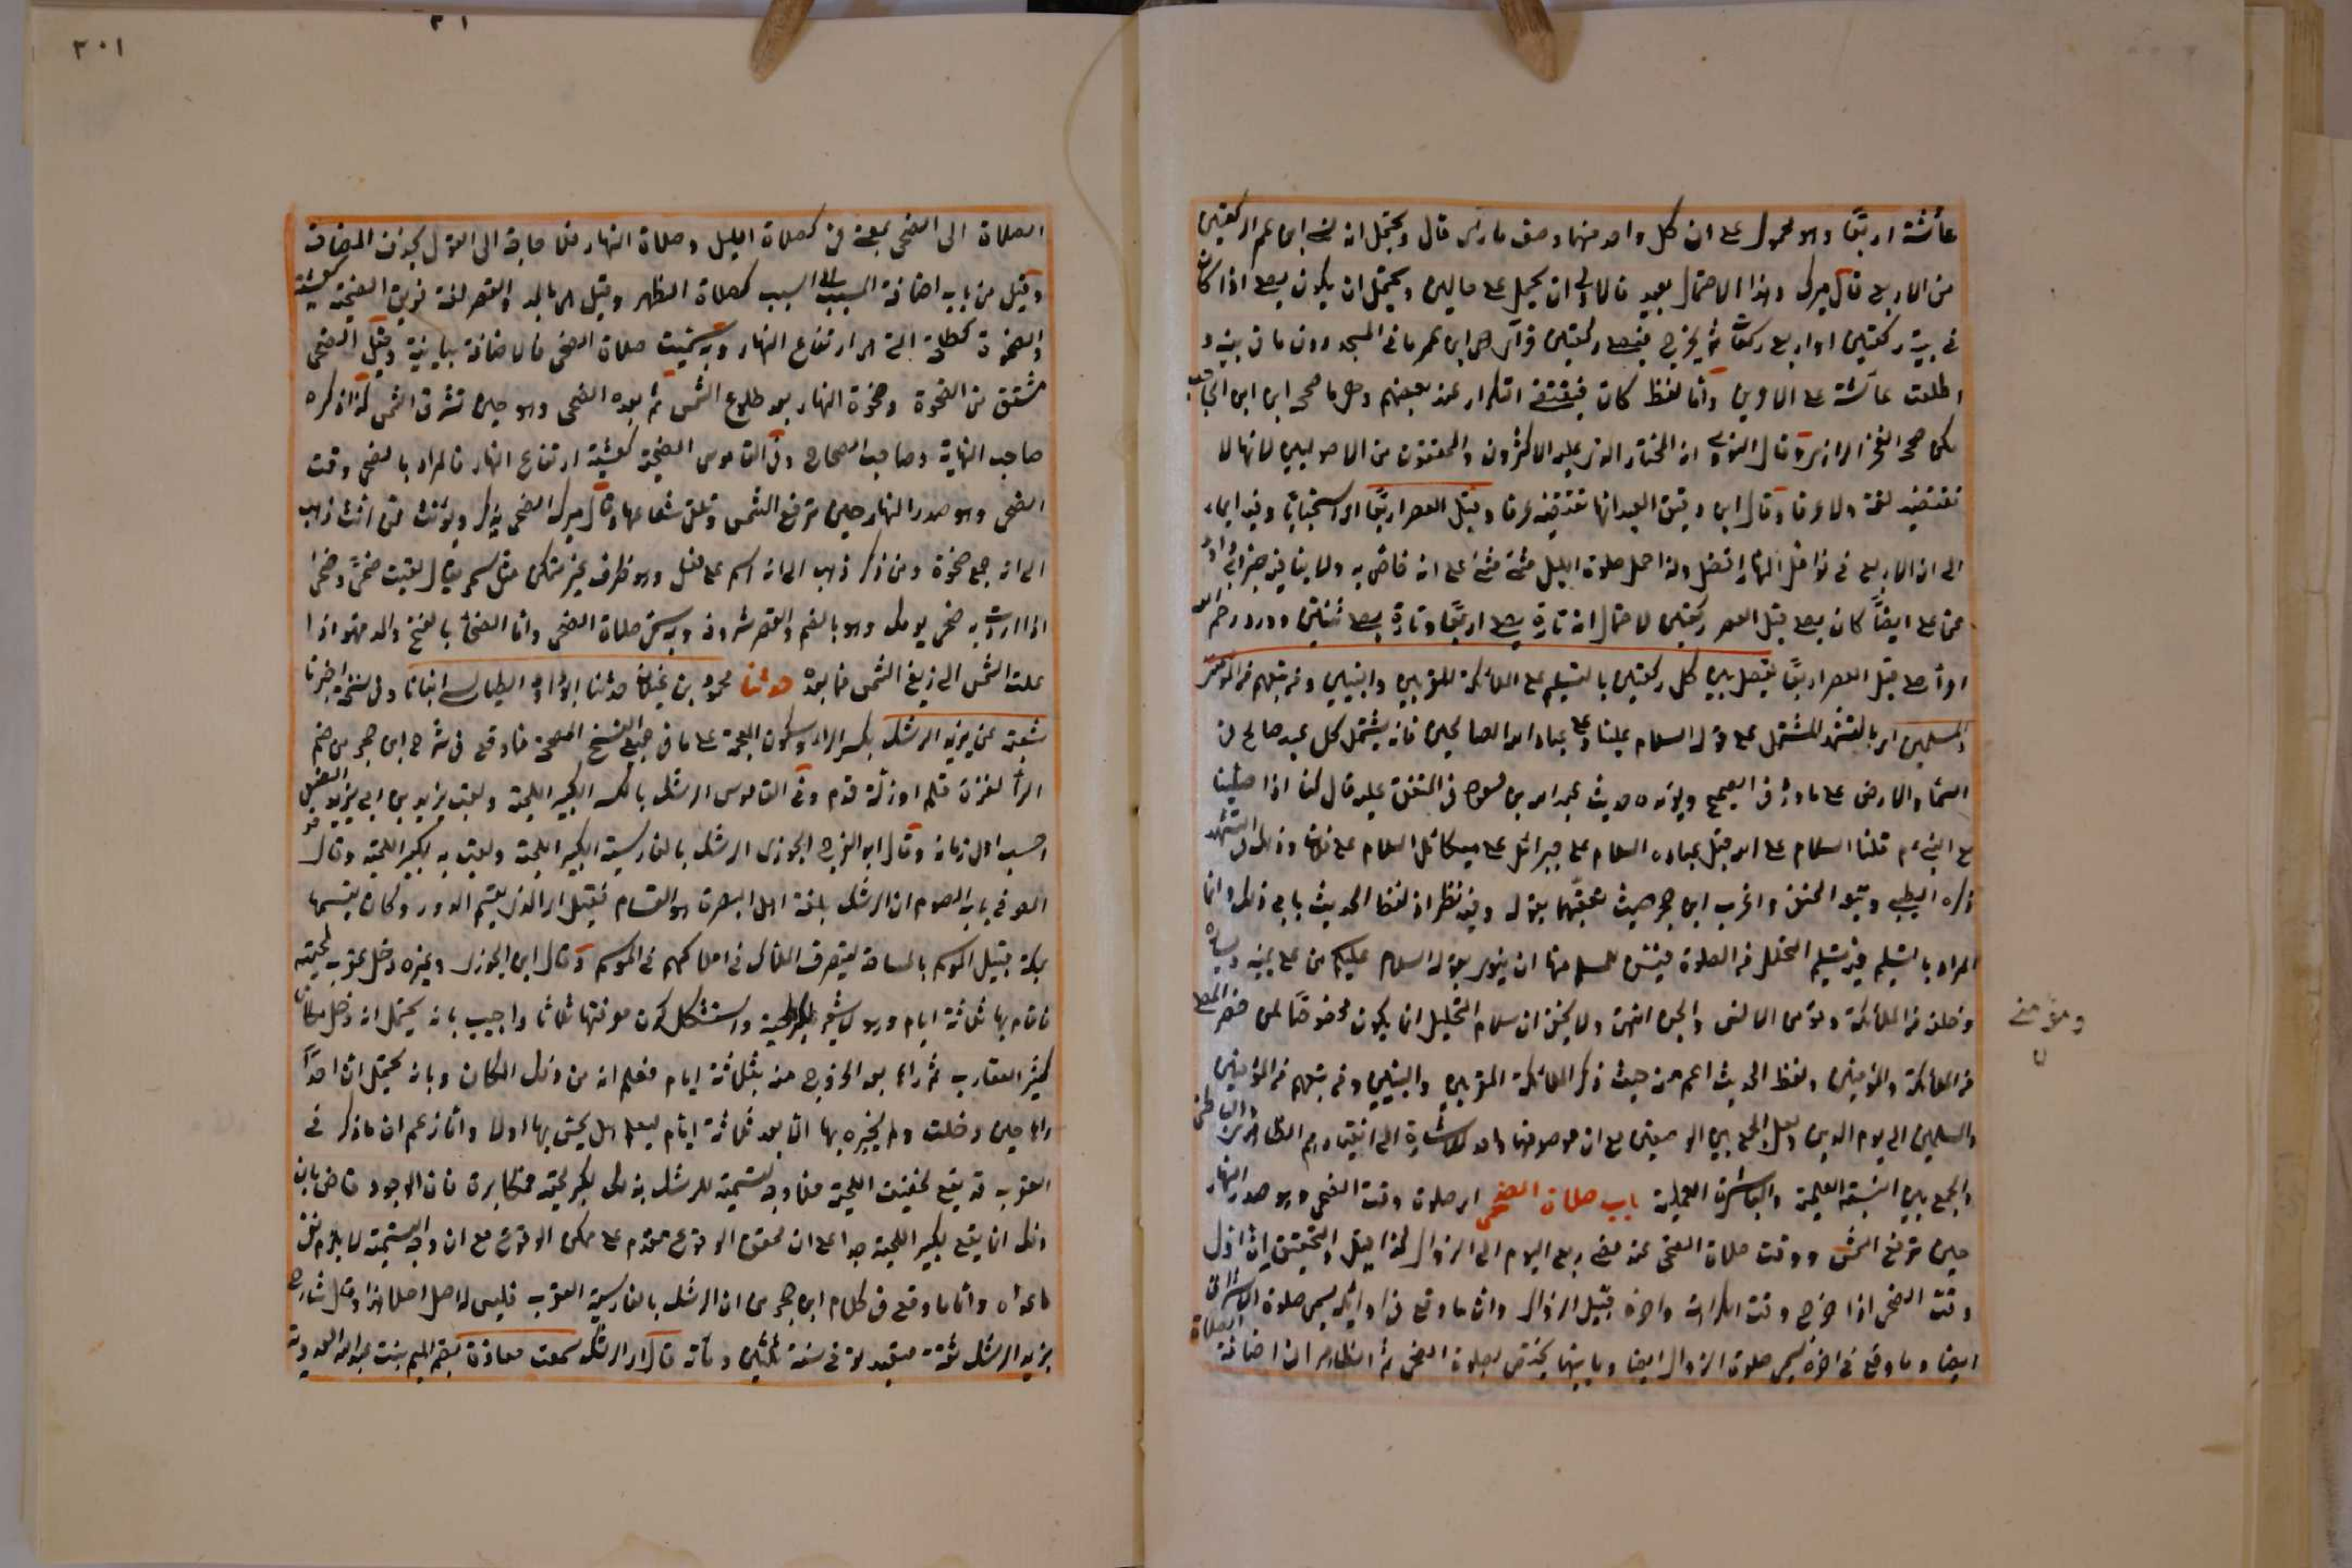 عائشة اربعًا وهو محمول على ان كل واحد منهما وصف ما رأى قال ويحتمل انه نسي ابن عمر الركعتين
من الاربع قال ميرك وهذا الاحتمال بعيد فالاولى ان يحمل على حالين ويحتمل ان يكون يصلي اذا كان
في بيته ركعتين او اربع ركعات ثم يخرج فيصلي ركعتين فرأى ابن عمر ما في المسجد دون ما في بيته و
اطلعت عائشة على الامرين واما لفظ كان فيقتضي التكرار عند بعضهم وهو ما صححه ابن الحاجب
لكن صحح الفخر الرازي وقال النووي انه المختار الذي عليه الاكثرون والمحققون من الاصوليين انها لا
تقتضيه لغة ولا عرفا وقال ابن دقيق العيد انها تقتضيه عرفا وقبل العصر اربعًا اي استحبابا وفيه ايماء
الى ان الاربع في نوافل النهار افضل ولذا حمل صلوة الليل مثنى مثنى على انه خاص به ولا ينافيه خبر ابي داود
عن علي ايضًا كان يصلي قبل العصر ركعتين لاحتمال انه تارة يصلي اربعًا وتارة يصلي ثنتين وورد رحم الله
امرأ صلى قبل العصر اربعًا يفصل بين كل ركعتين بالتسليم على الملائكة المقربين والنبيين ومن تبعهم من المؤمنين
والمسلمين اي بالتشهد المشتمل على قوله السلام علينا وعلى عباد الله الصالحين فانه يشتمل كل عبد صالح في
السماء والارض على ما ورد في الصحيح ويؤيده حديث عبد الله بن مسعود في المتفق عليه قال كنا اذا صلينا
مع النبي عم قلنا السلام على الله قبل عباده السلام على جبرائل على ميكائل السلام على فلان وذلك في التشهد
ذكره الطيبي وتبعه الحنفي واغرب ابن حجر حيث تعقبهما بقوله وفيه نظر اذ لفظ الحديث يابى ذلك وانما
المراد بالتسليم فيه تسليم التحلل من الصلوة فيسن للمسلم منها ان ينوي بقوله السلام عليكم من على يمينه ويساره
وخلفه من الملائكة ومؤمني الانس والجن انتهى ولا يخفى ان سلام التحليل انما يكون مخصوصًا لمن حضر المصلي
من الملائكة والمؤمنين ولفظ الحديث اعم منه حيث ذكر الملائكة المقربين والنبيين ومن تبعهم من المؤمنين
والمسلمين الى يوم الدين ولعل الجمع بين الوصفين مع ان موصوفهما واحد للاشارة الى انقيادهم الظاهر والباطن
والجمع بين النسبة العلمية والمباشرة العملية باب صلاة الضحى اي صلوة وقت الضحى وهو صدر النهار
حين ترتفع الشمس ووقت صلاة الضحى عند مضي ربع اليوم الى الزوال كذا قيل والتحقيق ان اول
وقت الضحى اذا خرج وقت الكراهة واخره قبيل الزوال وان ما وقع في اوائله يسمى صلوة الاشراق
ايضا وما وقع في اخره يسمى صلوة الزوال ايضا وما بينهما يختص بصلوة الضحى ثم الظاهر ان اضافة الصلاة
ومؤمني
ن
٣٠١
الصلاة الى الضحى بمعنى في كصلاة الليل وصلاة النهار فلا حاجة الى القول بحذف المضاف
وقيل من باب اضافة المسبب الى السبب كصلاة الظهر وقيل الضحا بالمد والقصر لغة فويق الضحية كعشية
والضحوة كطلحة التي هي ارتفاع النهار وبه سميت صلاة الضحى فالاضافة بيانية وقيل الضحى
مشتق من الضحوة وضحوة النهار بعد طلوع الشمس ثم بعده الضحى وهو حين تشرق الشمس كذا ذكره
صاحب النهاية وصاحب الصحاح وفي القاموس الضحية كعشية ارتفاع النهار فالمراد بالضحى وقت
الضحى وهو صدر النهار حين ترتفع الشمس وتلقي شعاعها وقال ميرك الضحى يذكر ويؤنث فمن انث ذهب
الى انه جمع ضحوة ومن ذكر ذهب الى انه اسم على فعل وهو ظرف غير متمكن مثل سحر يقال لقيته ضحًى وضحى
اذا اردت به ضحى يومك وهو بالضم والقصر شروقه وبه سمي صلاة الضحى واما الضحاء بالفتح والمد فهو اذا
علت الشمس الى زيغ الشمس فما بعده حدثنا محمود بن غيلان حدثنا ابو داود الطيالسي انبانا وفي نسخة اخبرنا
شعبة عن يزيد الرشك بكسر الراء وسكون المعجمة على ما في جميع النسخ المصححة فما وقع في شرح ابن حجر من ضم
الراء لغزة قلم او زلة قدم وفي القاموس الرشك بالكسر الكبير اللحية ولقب يزيد بن ابي يزيد الضبعي
احسب اهل زمانه وقال ابو الفرج الجوزي الرشك بالفارسية الكبير اللحية ولقب به لكبر لحيته وقال
المص في باب الصوم ان الرشك بلغة اهل البصرة هو القسام فقيل اي الذي يقسم الدور وكان يقسمها
بمكة قبيل الموسم بالمساحة ليتصرف الملاك في املاكهم في الموسم وقال ابن الجوزي وغيره دخل عقرب لحيته
فاقام بها ثلاثة ايام وهو لا يشعر لكبر لحيته واستشكل كون معرفتها ثلاثا واجيب بانه يحتمل انه دخل مكانا
كثير العقارب ثم رآها بعد الخروج منه بثلاثة ايام فعلم انه من ذلك المكان وبانه يحتمل ان احدًا
راها حين دخلت ولم يخبره بها الا بعد ثلاثة ايام ليعلم هل يحس بها اولا واما زعم ان ما ذكر في
العقرب قد يقع لخفيف اللحية فلا وجه لتسمية الرشك بذلك لكبر لحيته فمكابرة فان الوجود قاض بان
ذلك انما يقع لكبير اللحية جدا على ان محقق الوقوع مقدم على ممكن الوقوع مع ان وجه التسمية لا يلزم نفي
ما عداه واما ما وقع في كلام ابن حجر من ان الرشك بالفارسية العقرب فليس له اصل اصلا هذا وقال شارح
يزيد الرشك ثقة متعبد توفي سنة ثلثين ومائة قال اي الرشك سمعت معاذة بضم الميم بنت عبد الله العدوية